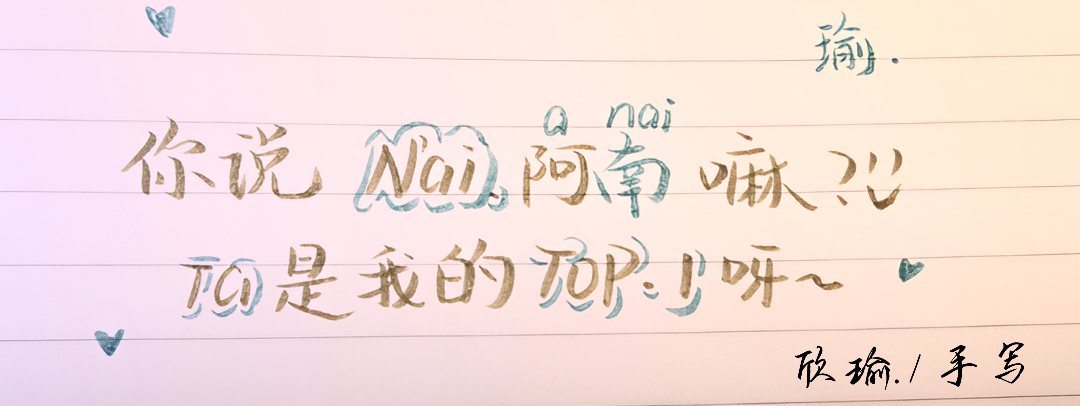 瑜.
a nai
你说 Nai. 阿南 嘛?!!
Ta是我的TOP.1呀~
欣瑜./手写